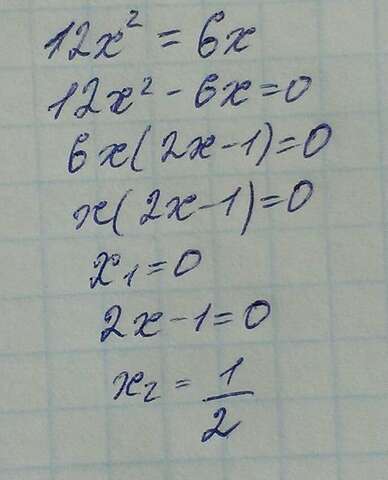 12x² = 6x
12x² - 6x = 0
6x(2x-1)=0
x(2x-1)=0
x₁=0
2x-1=0
x₂ = 1/2